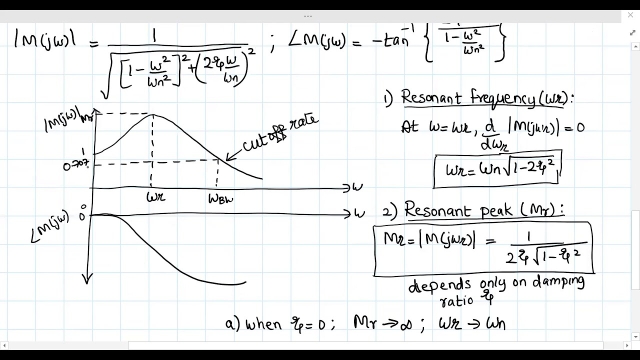 |M(jω)| = 1 / √([1 − ω²/ωn²]² + (2ξ ω/ωn)²) ; ∠M(jω) = −tan⁻¹ { / 1 − ω²/ωn² }
|M(jω)|
Mr
1
0.707
cutoff rate
ωr
ωBW
ω
∠M(jω)
0
0
ω
1) Resonant frequency (ωr):
At ω = ωr, d/dωr |M(jωr)| = 0
ωr = ωn √(1−2ξ²)
2) Resonant peak (Mr):
Mr = |M(jωr)| = 1 / (2ξ √(1−ξ²))
depends only on damping
ratio ξ
a) when ξ=0 ; Mr → ∞ ; ωr → ωn